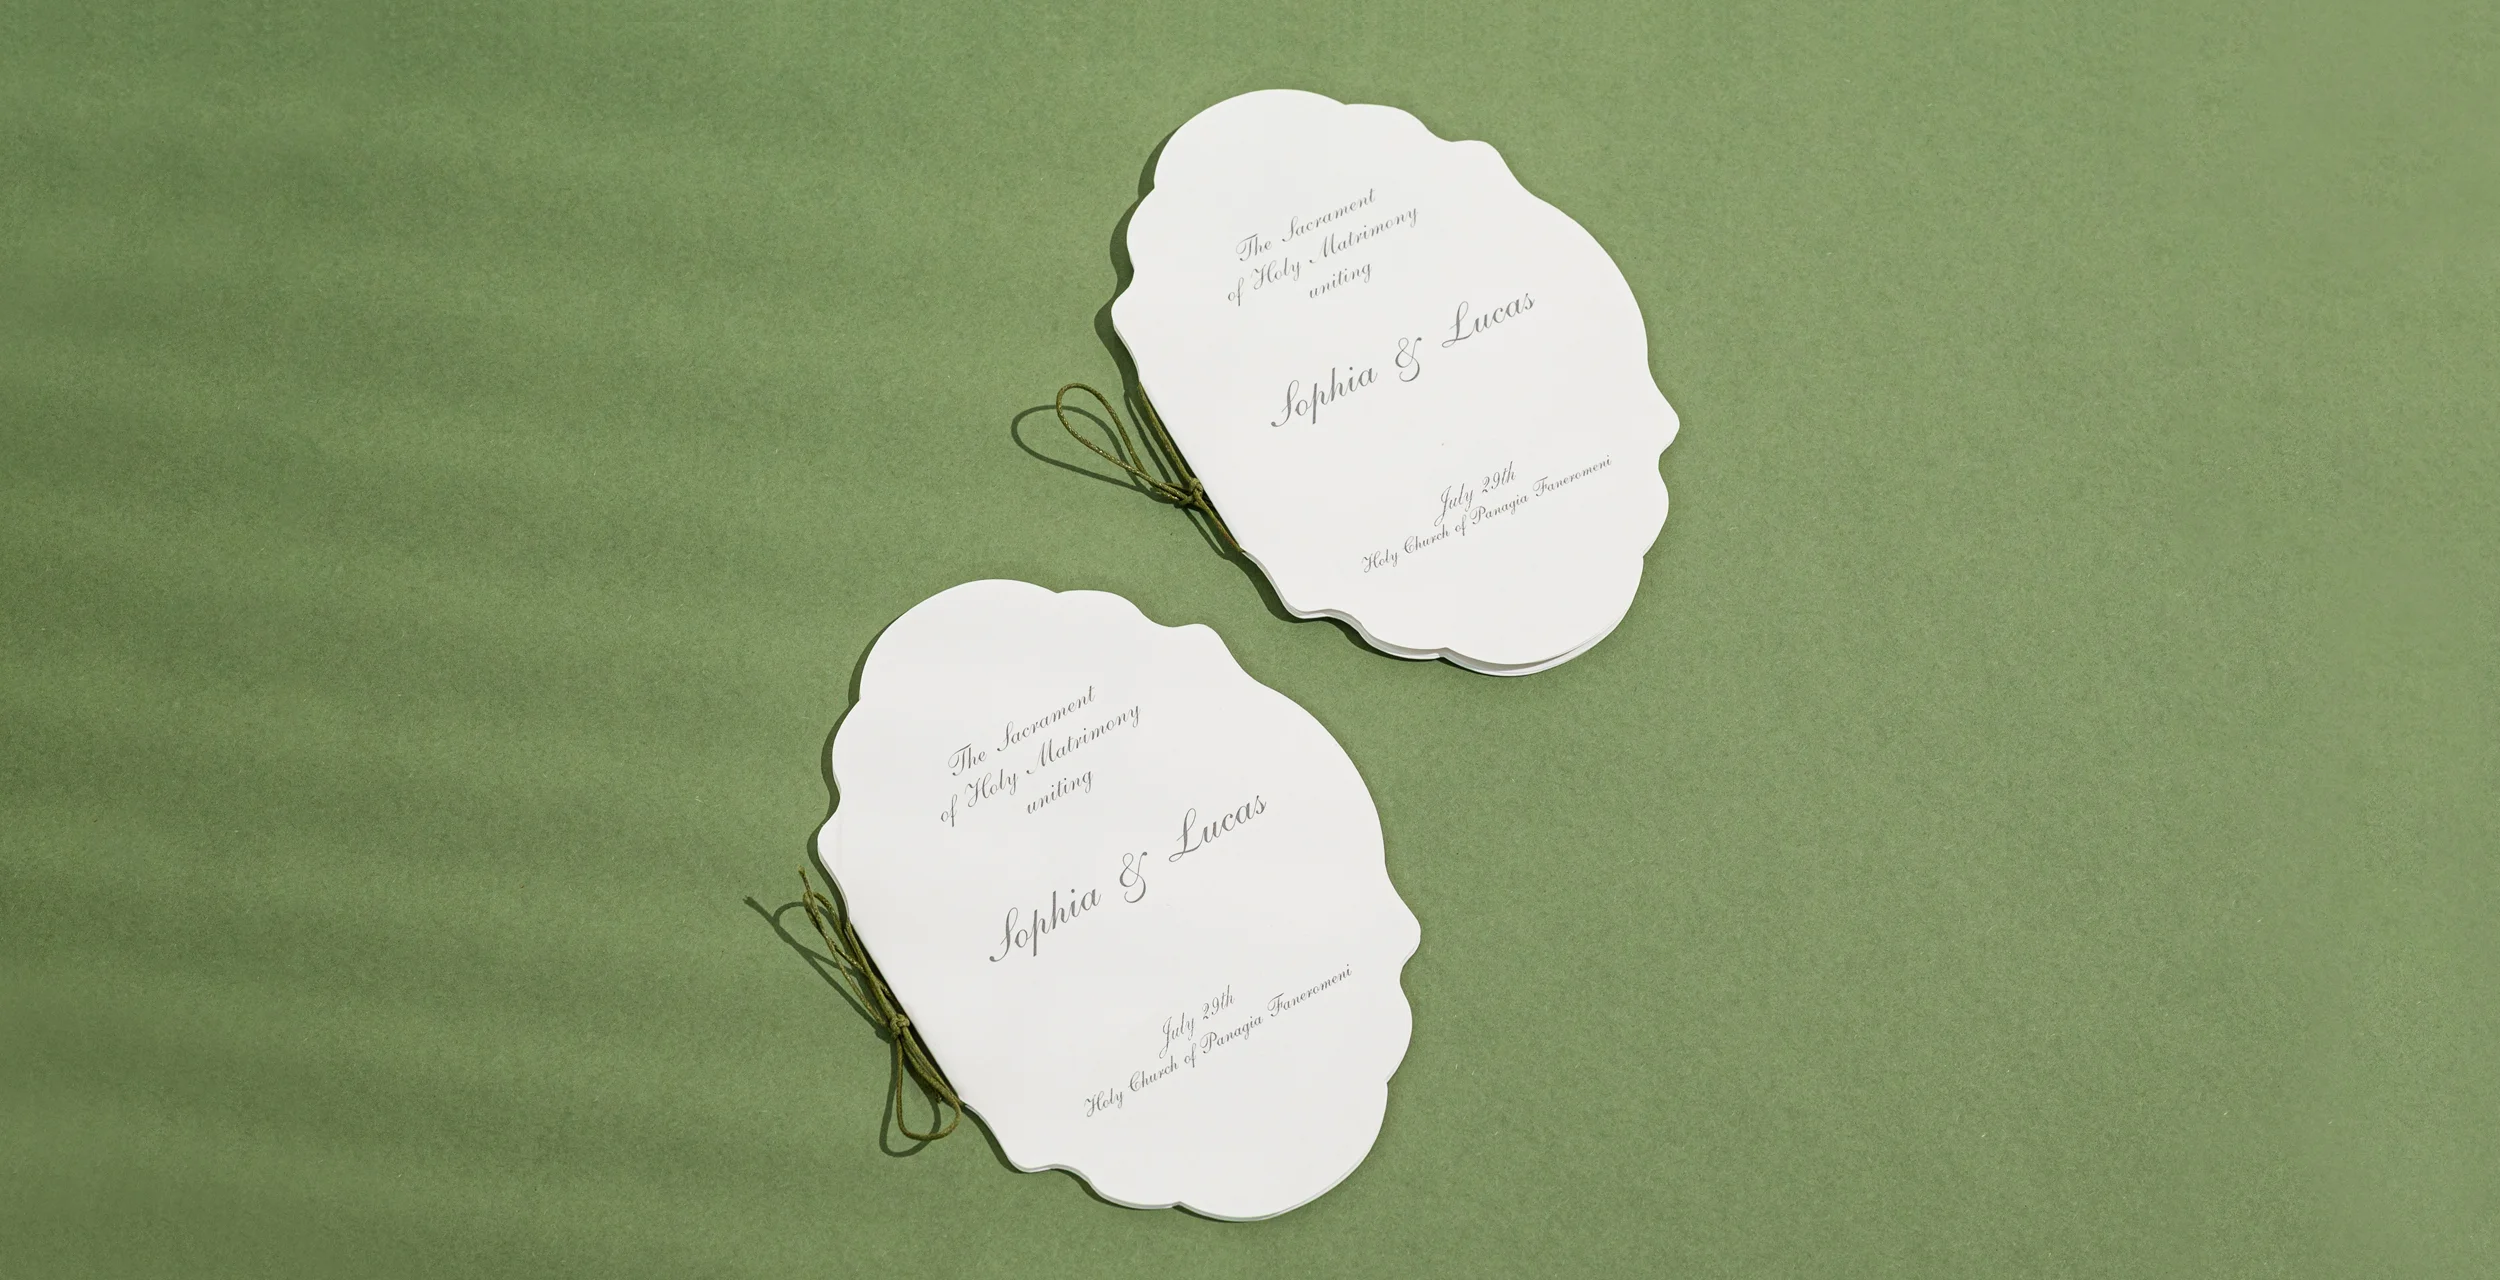 The Sacrament
of Holy Matrimony
uniting
Sophia & Lucas
July 29th
Holy Church of Panagia Faneromeni
The Sacrament
of Holy Matrimony
uniting
Sophia & Lucas
July 29th
Holy Church of Panagia Faneromeni